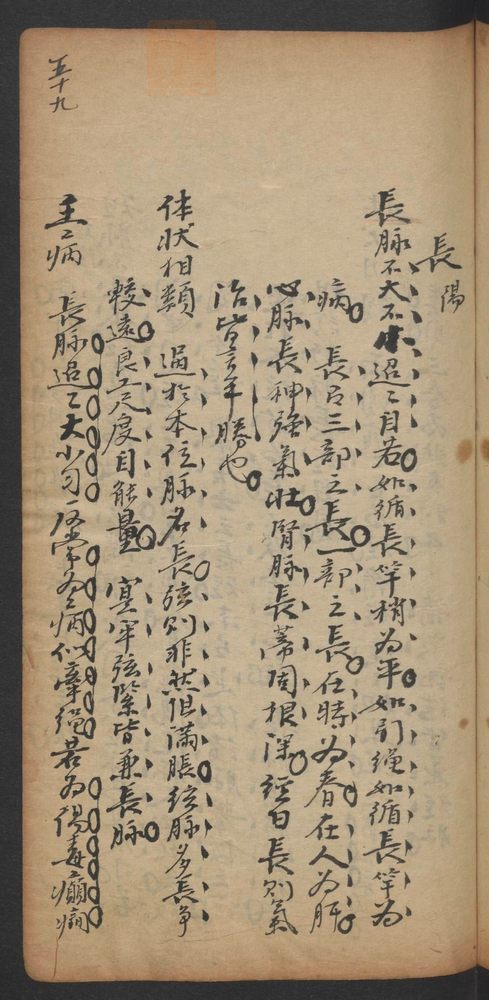 五十九
長 陽
長脉不大不小迢〻自若如循長竿梢為平如引繩如循長竿為
病 長有三部之長一部之長在時為春在人為肝
心脉長神强氣壯腎脉長蒂固根深經曰長則氣
治皆言平脉也
体状相類 過於本位脉名長弦則非然但滿脹弦脉多長爭
較遠良工尺度自能量 實牢弦緊皆兼長脉
主〻病 長脉迢〻大小勻反常為病似牽繩若為陽毒癲癇